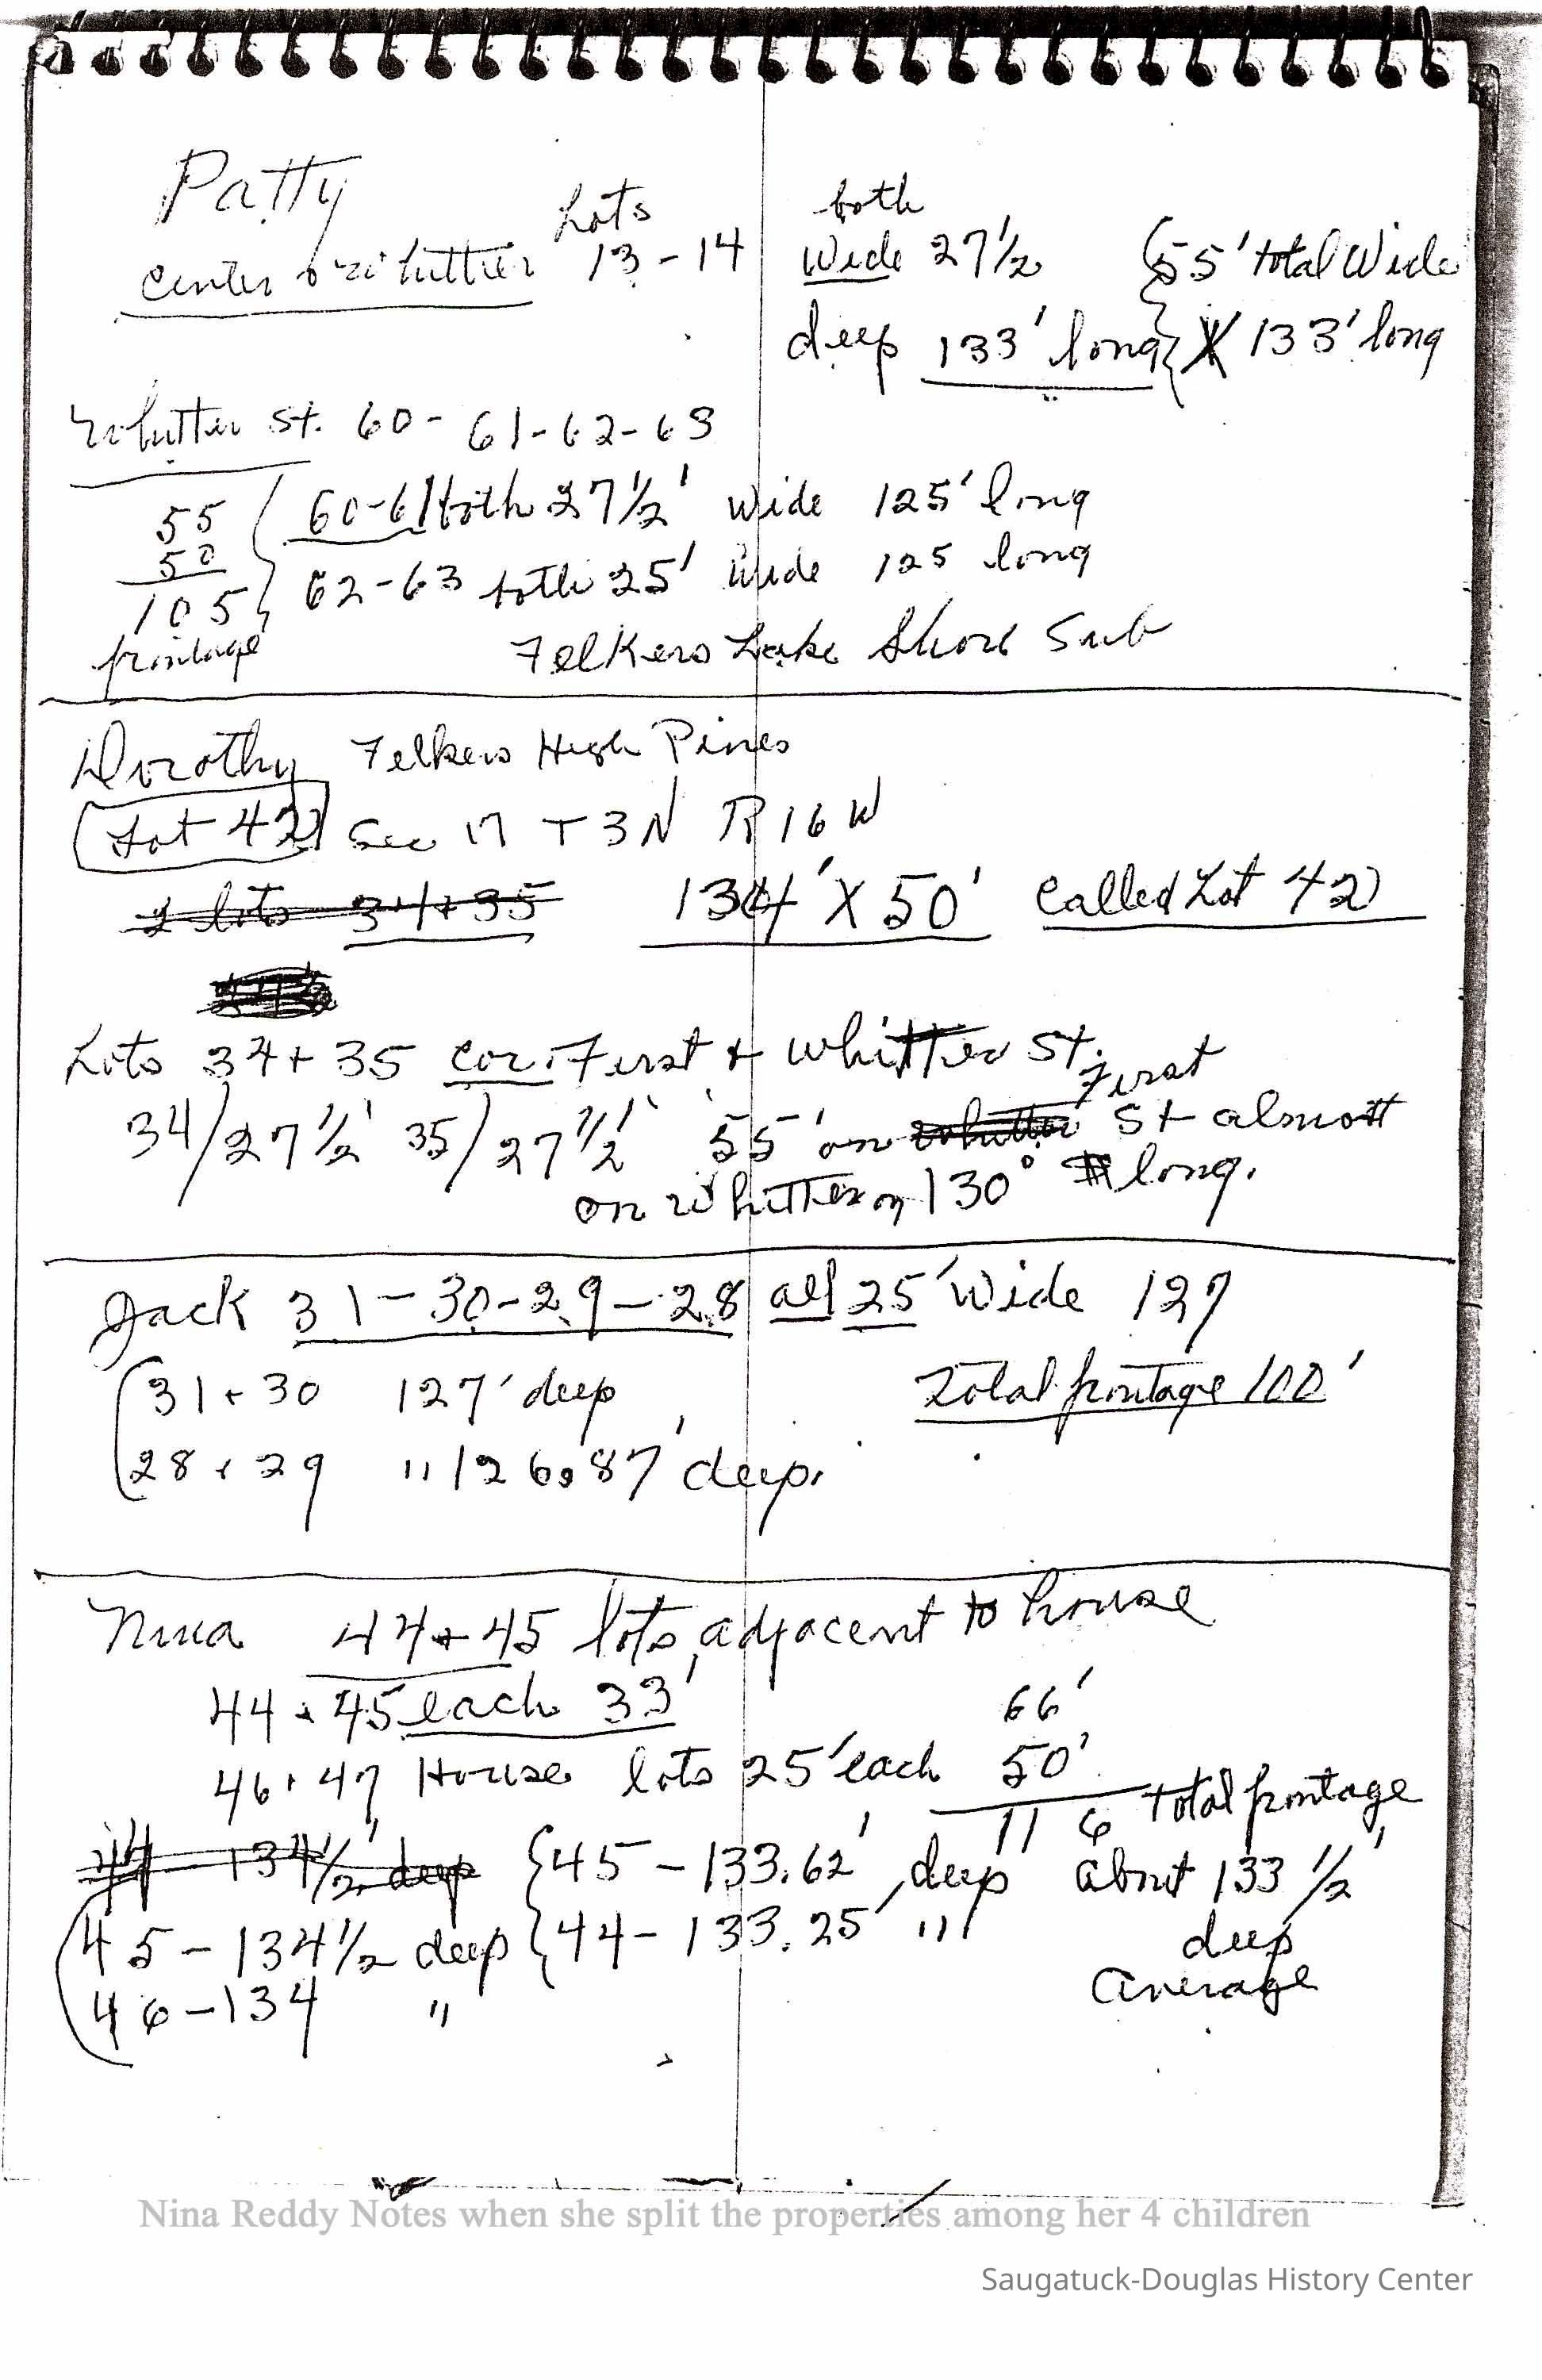 Patty
Center + Whittier Lots 13 - 14 both Wide 27 1/2' {55' total Wide
deep 133' long} X 133' long
Whittier St. 60 - 61 - 62 - 63
55 { 60-61 both 27 1/2' wide 125' long
50
105 { 62-63 both 25' wide 125 long
frontage Felkers Lake Shore Sub
Dorothy Felkers High Pines
Lot 42 Sec 17 T 3 N R 16 W
2 lots 34 + 35 134' X 50' called Lot 42
Lots 34 + 35 cor. First + Whittier St.
34/27 1/2' 35/27 1/2' 55' on Whittier First St almost
on Whittier 130° long.
Jack 31 - 30 - 29 - 28 all 25' Wide 127
(31 + 30 127' deep Total frontage 100'
28 + 29 " 126.87' deep.
Nina 44 + 45 lots adjacent to house
44 + 45 each 33' 66'
46 + 47 House lots 25' each 50'
116 total frontage
44 134 1/2' deep {45 - 133.62' deep about 133 1/2'
(45 - 134 1/2 deep {44 - 133.25' " deep
46 - 134 " average
Nina Reddy Notes when she split the properties among her 4 children
Saugatuck-Douglas History Center